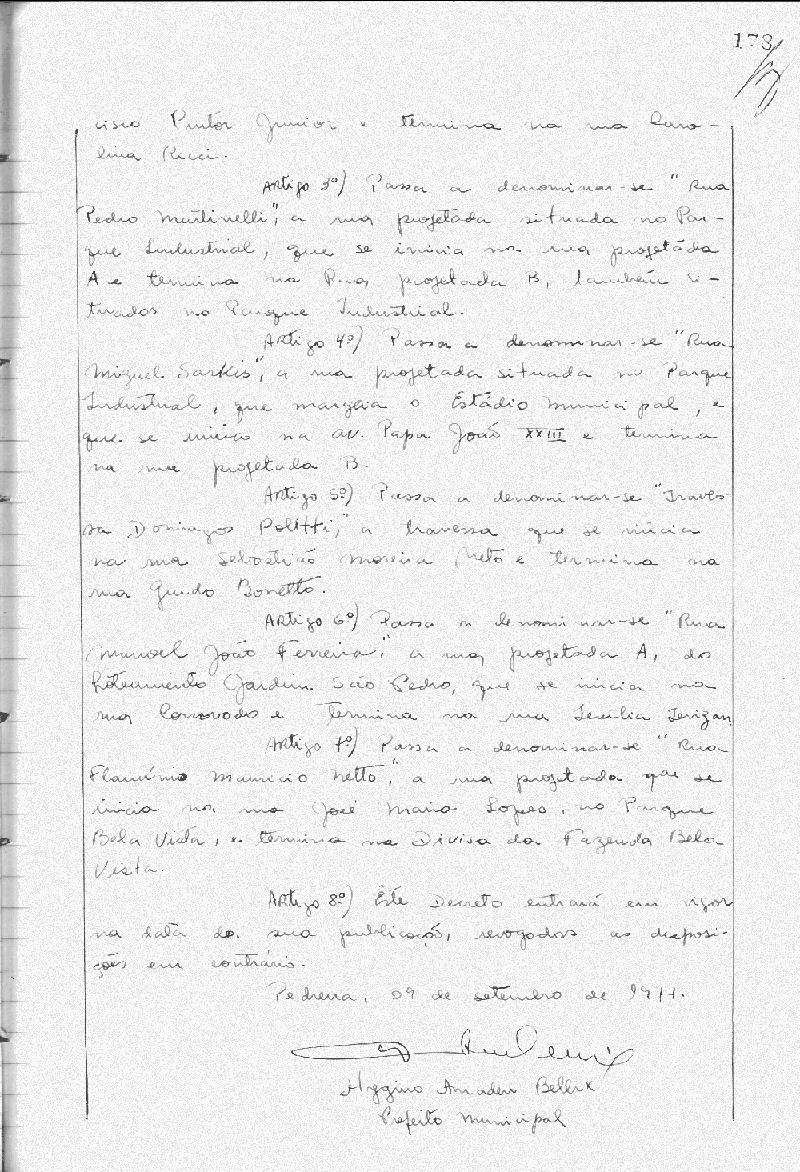 173
cisco Pintor Junior e termina na rua Caro-
lina Ricci.
Artigo 3º) Passa a denominar-se "Rua
Pedro Martinelli", a rua projetada situada no Par-
que Industrial, que se inicia na rua projetada
A e termina na Rua projetada B, também si-
tuados no Parque Industrial.
Artigo 4º) Passa a denominar-se "Rua
Miguel Sarkis", a rua projetada situada no Parque
Industrial, que margeia o Estádio Municipal, e
que se inicia na av. Papa João XXIII e termina
na rua projetada B.
Artigo 5º) Passa a denominar-se "Traves-
sa Domingos Politti", a travessa que se inicia
na rua Sebastião Moreira Neto e termina na
rua Guido Bonetto.
Artigo 6º) Passa a denominar-se "Rua
Manoel João Ferreira", a rua projetada A, do
Loteamento Jardim São Pedro, que se inicia na
rua Corcovado e termina na rua
Artigo 7º) Passa a denominar-se "Rua
Flamínio Mauricio Netto", a rua projetada que se
inicia na rua José Maria Lopes, no Parque
Bela Vista, e termina na Divisa da Fazenda Bela
Vista.
Artigo 8º) Este Decreto entrará em vigor
na data de sua publicação, revogadas as disposi-
ções em contrário.
Pedreira, 09 de setembro de
Hygino Amadeu Bellix
Prefeito Municipal